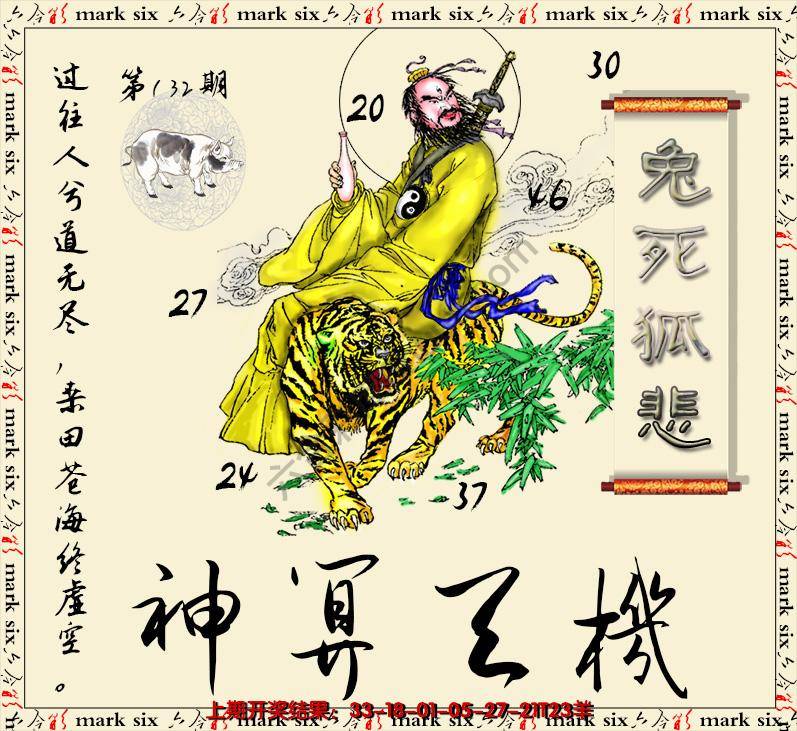 六合彩 mark six 六合彩 mark six 六合彩 mark six 六合彩 mark six 六合彩 mark six
第132期
20
30
46
27
24
37
过往人兮道无尽，桑田苍海终虚空。
兔死狐悲
神算天機
上期开奖结果：33-18-01-05-27-21T23羊